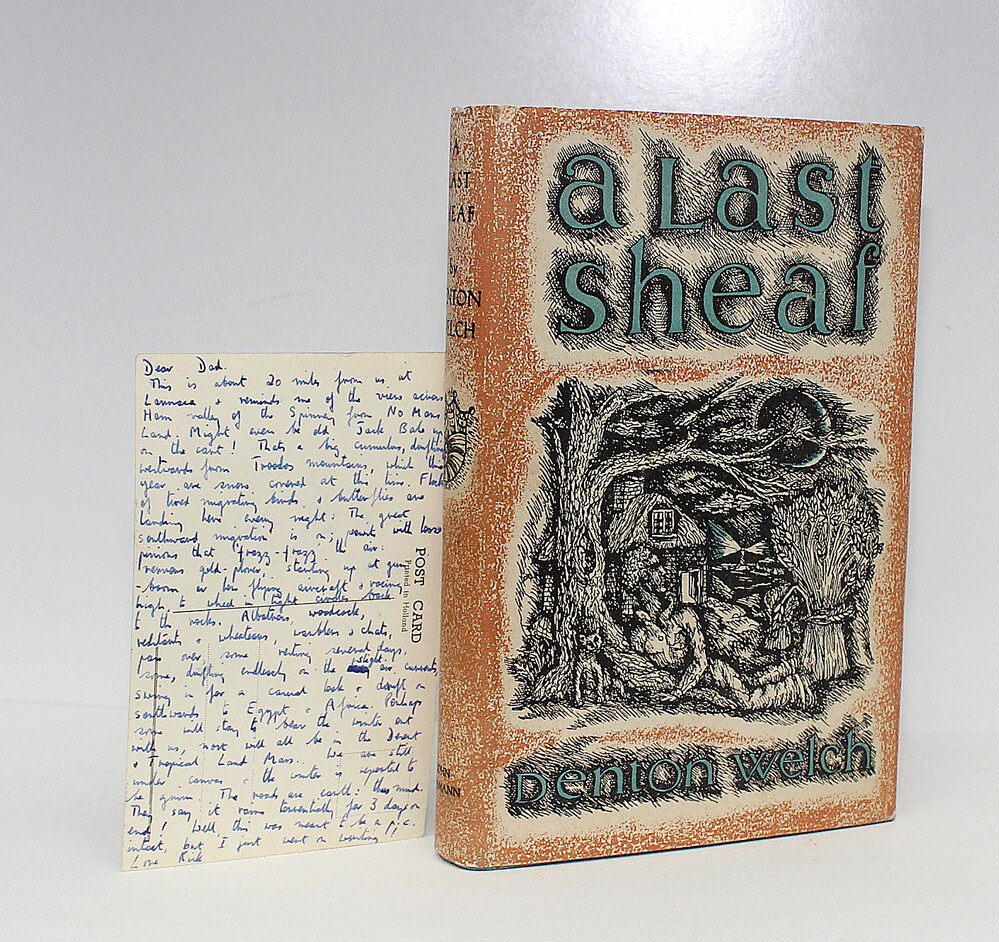 Dear Dad.
This is about 20 miles from us at
& reminds me of the view across
Ham valley of the Spinney from No Mans
Land. Might even be old Jack Bale up
on the cart! Thats a big cumulus, drifting
westwards from Troodos mountains, which this
year are snow covered at this time.
of tired migrating birds & butterflies are
landing here every night: The great
southward migration is on;
pinions that frazz-frazz the air:
nervous gold-plover, starting up at gun
-boom or low flying aircraft & racing
high, to wheel in tight circles back
to the rocks. woodcock,
redstarts & wheatears, warblers & chats,
pass over some resting several days,
some, drifting endlessly on the slight air currents,
swing in for a casual look & drift on
southwards to Egypt & Africa. Perhaps
some will stay to bear the winter out
with us, most will all be in the Desert
& Tropical Land Mass. We are still
under canvas & the winter is reputed to
be grim. The roads are earth: thus mud.
They say it rains torrentially for 3 days on
end! Well, this was meant to be a p.c.
intact, but I just went on writing
Love Rick
POST CARD
Printed in Holland
A
LAST
SHEAF
by
DENTON
WELCH
a Last
sheaf
Denton Welch